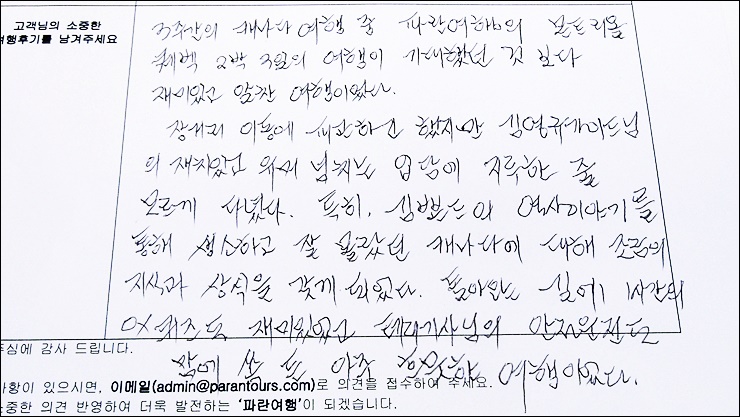 고객님의 소중한
여행후기를 남겨주세요
3주간의 캐나다 여행 중 파란여행의 몬트리올
퀘벡 2박 3일의 여행이 기대했던 것 보다
재미있고 알찬 여행이었다.
장거리 이동에 피곤하긴 했지만 김영규가이드님
의 재치있고 위이 넘치는 입담에 지루한 줄
모르게 다녔다. 특히, 의 역사이야기를
통해 생소하고 잘 몰랐던 캐나다에 대해 조금의
지식과 상식을 갖게 되었다. 돌아오는 길에 1시간의
OX퀴즈도 재미있었고 기사님의 안전운전도
맘에 쏙 든 아주 여행이었다.
주심에 감사 드립니다.
사항이 있으시면, 이메일(admin@parantours.com)로 의견을 접수하여 주세요.
소중한 의견 반영하여 더욱 발전하는 '파란여행'이 되겠습니다.